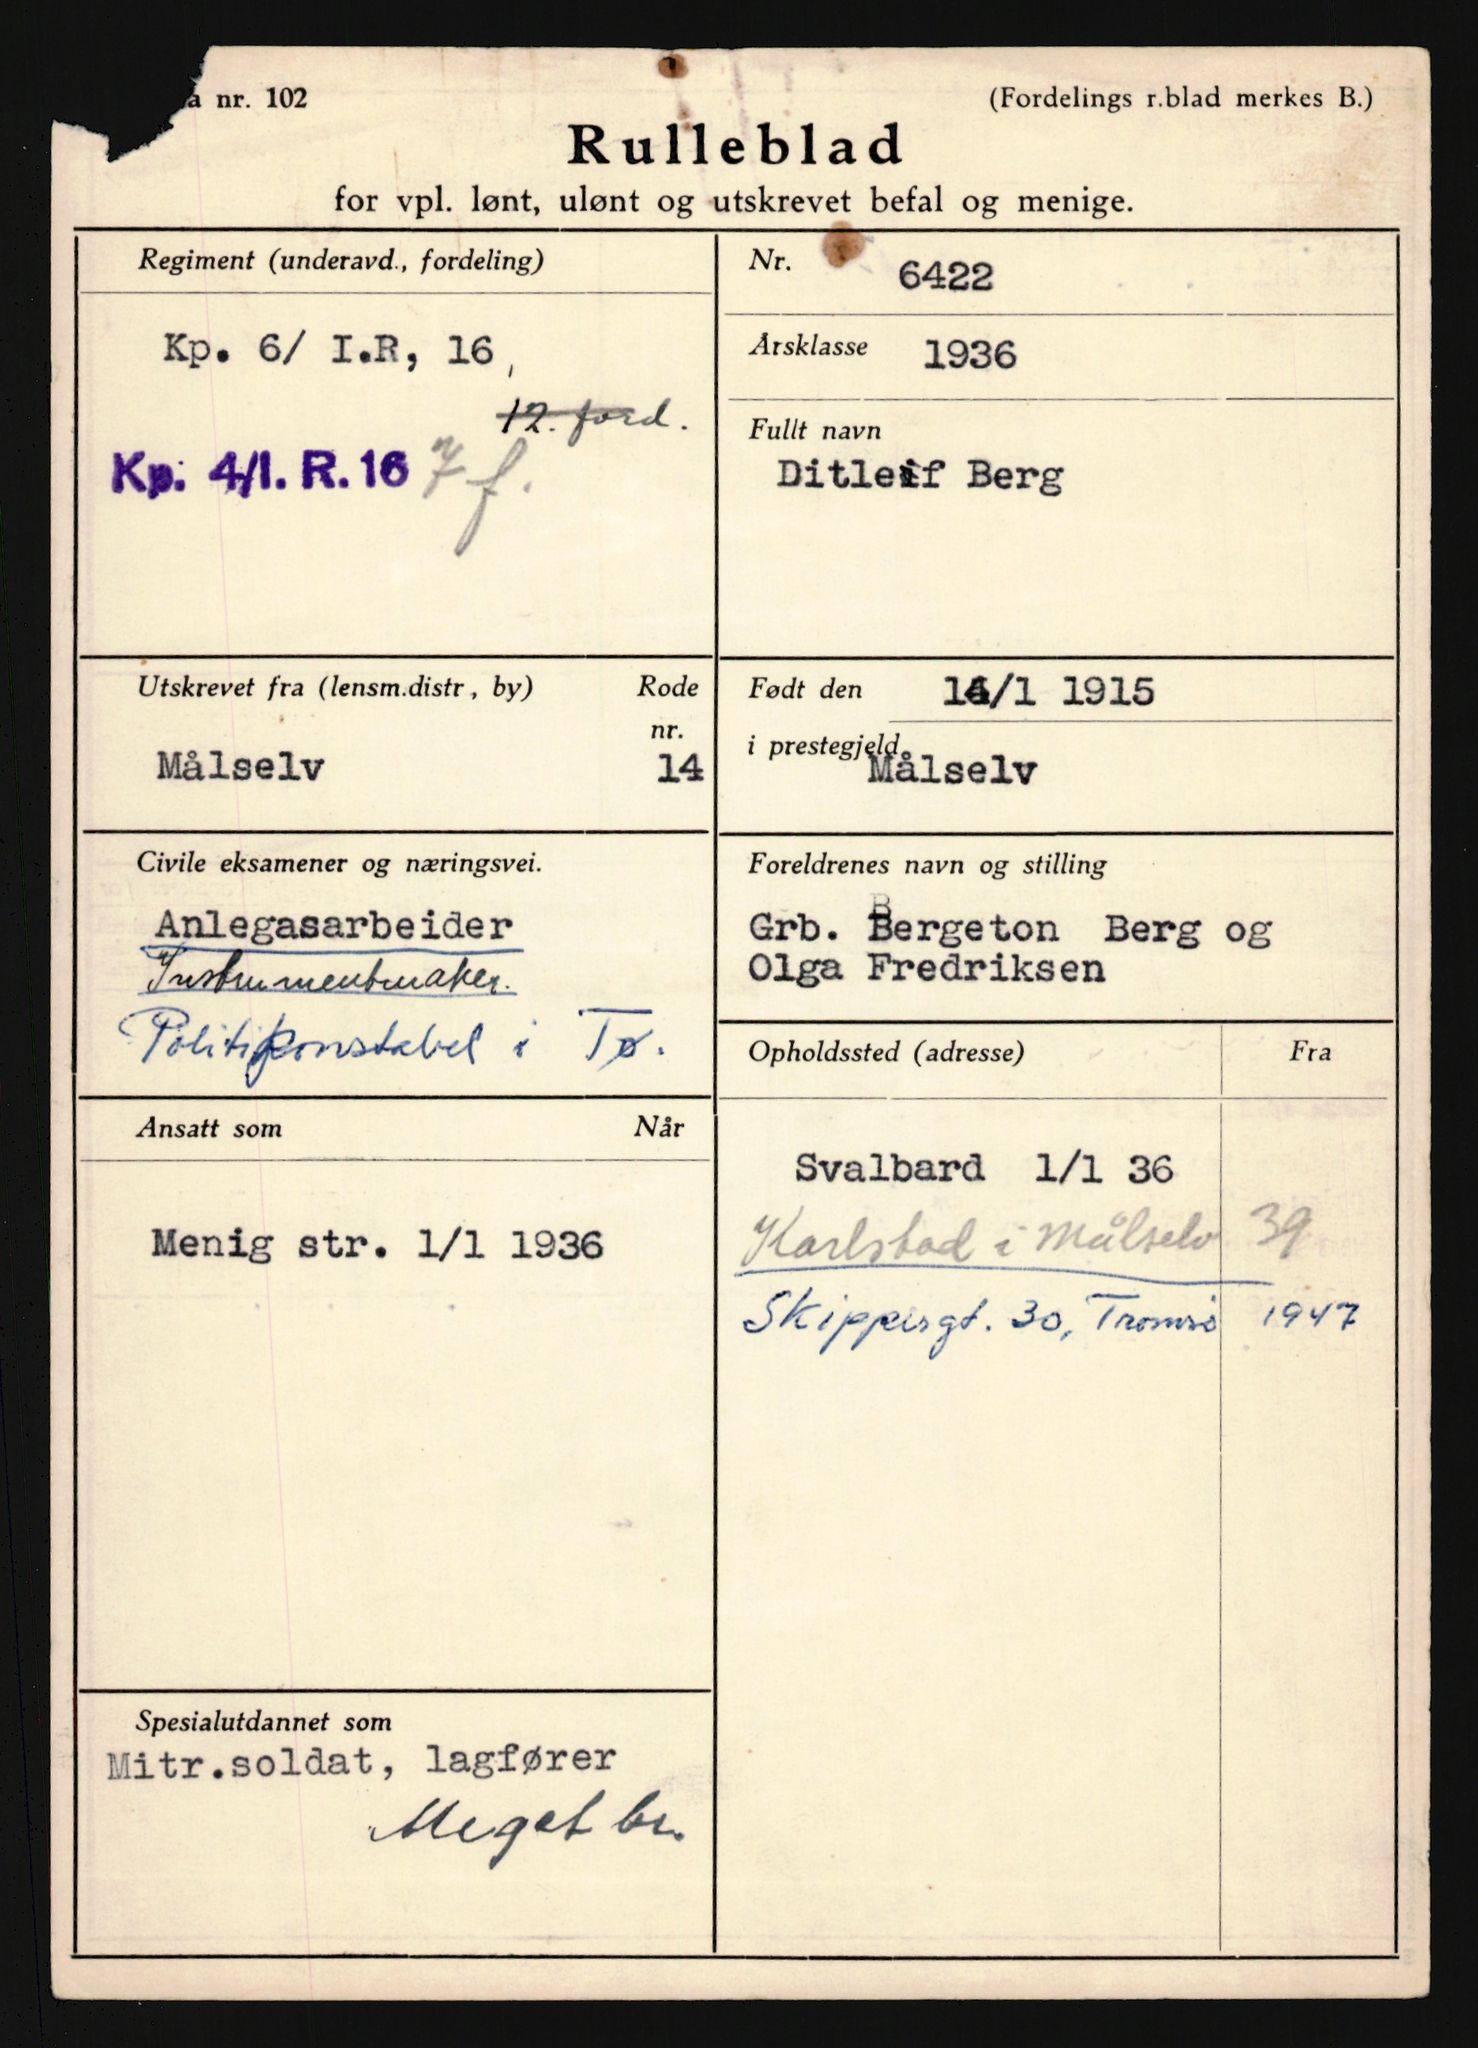 a nr. 102
(Fordelings r.blad merkes B.)
Rulleblad
for vpl. lønt, ulønt og utskrevet befal og menige.
Regiment (underavd., fordeling)
Kp. 6/ I.R, 16,
12. ford.
Kp. 4/I. R. 16 7 f.
Nr. 6422
Årsklasse 1936
Fullt navn
Ditleif Berg
Utskrevet fra (lensm.distr, by) Rode
nr.
Målselv 14
Født den /1 1915
i prestegjeld Målselv
Civile eksamener og næringsvei.
Anlegasarbeider
Instrumentmaker.
Politikonstabel i Tø.
Foreldrenes navn og stilling
Grb. Bergeton Berg og
Olga Fredriksen
Ansatt som Når
Menig str. 1/1 1936
Opholdssted (adresse) Fra
Svalbard 1/1 36
Karlstad i Målselv 39
Skippergt. 30, Tromsø 1947
Spesialutdannet som
Mitr.soldat, lagfører
Meget br.